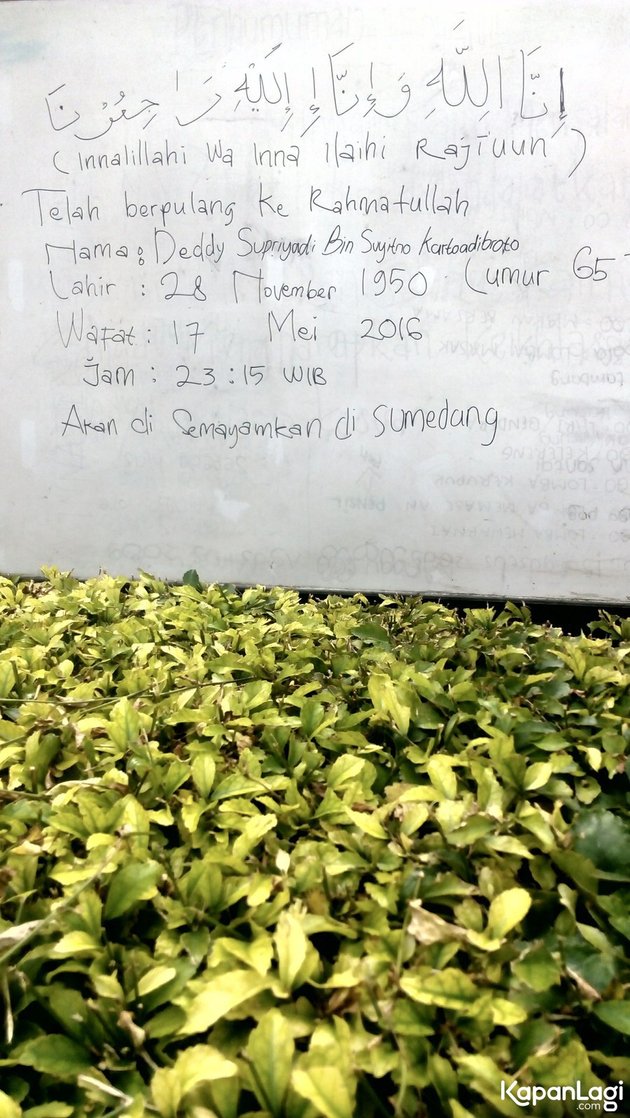 إِنَّا لِلَّهِ وَإِنَّا إِلَيْهِ رَاجِعُوْنَ
(Innalillahi Wa Inna Ilaihi Raji'uun)
Telah berpulang ke Rahmatullah
Nama : Deddy Supriyadi Bin Suyitno Kartoadibroto
Lahir : 28 November 1950 (umur 65
Wafat : 17 Mei 2016
Jam : 23:15 WIB
Akan di Semayamkan di Sumedang
KapanLagi
.com